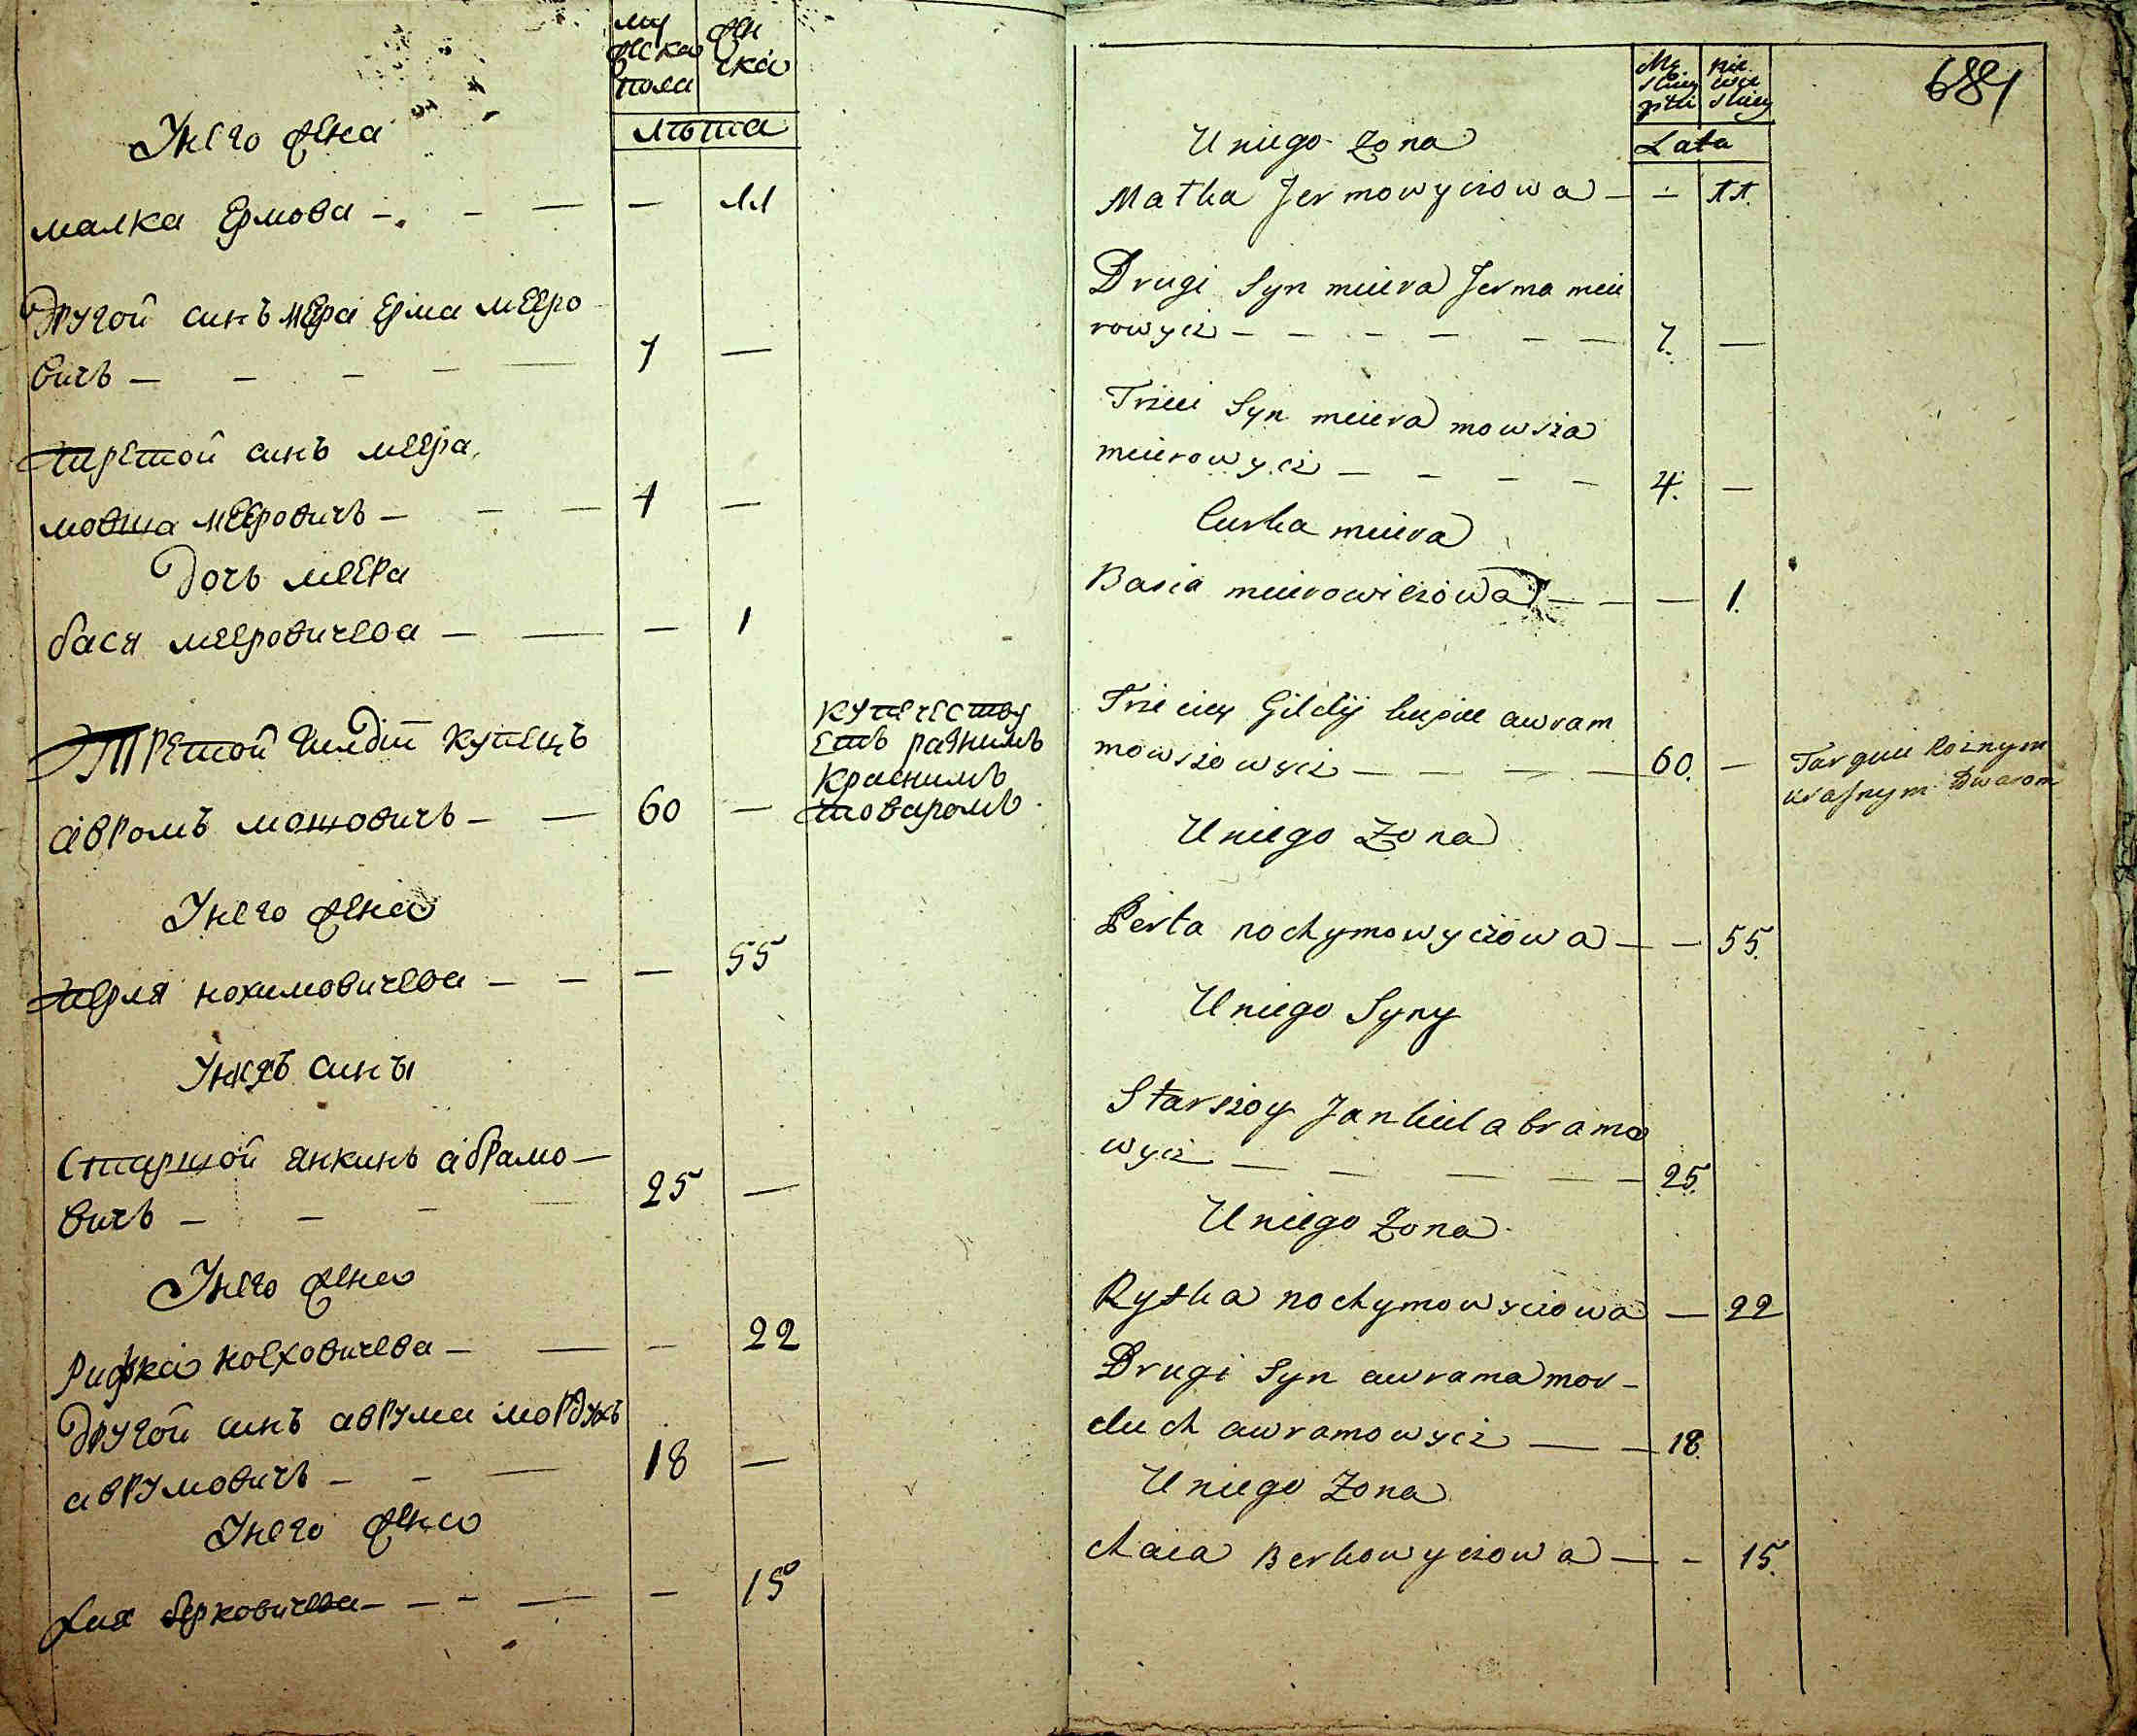 му
жска
пола
жн
ска
лѣта
Унего жена
малка Ермова - - - — 
Другой синъ меера Ерма мееро
вичъ — - - - — 7 —
третой синъ меера
мовша мееровичъ — - — 4 —
Дочь меера
бася мееровичева — — — 1
Третой гилдіи купецъ
авромъ мошовичъ — — 60 —
купечеству
етъ разнимъ
краснимъ
товаромъ
Унего жена
перля нохимовичева — — — 55
Унихъ сины
старшой янкиль абрамо—
вичъ — - - 25 —
Унего жена
Рифка ноеховичева — — — 22
другой синъ аврума мордухъ
аврумовичъ — - — 18 —
Унего жена
хая берковичева — - - — — 15
Mę
skiey
płci
nie
wie
skiey
Lata
681
U niego Zona
Malka Jermowyczowa — —
Drugi Syn meiera Jerma meie
rowycz — — — — — — 7. —
Trzeci Syn meiera mowsza
meierowycz — — — — 4. —
Curka meiera
Basia meierowiczowa — — — 1.
Trzeciey Gildij kupiec awram
mowszowycz — — — — 60. —
Targuie Roznym
krasnym towarom
U niego Zona
Perla nochymowyczowa — — 55.
U niego Syny
Starszoy Jankiel abramo
wycz — — — — — 25.
U niego Zona
Ryfka nochymowyczowa — 22
Drugi Syn awrama mor-
duch awramowycz — — 18.
U niego Zona
chaia Berkowyczowa — - 15.